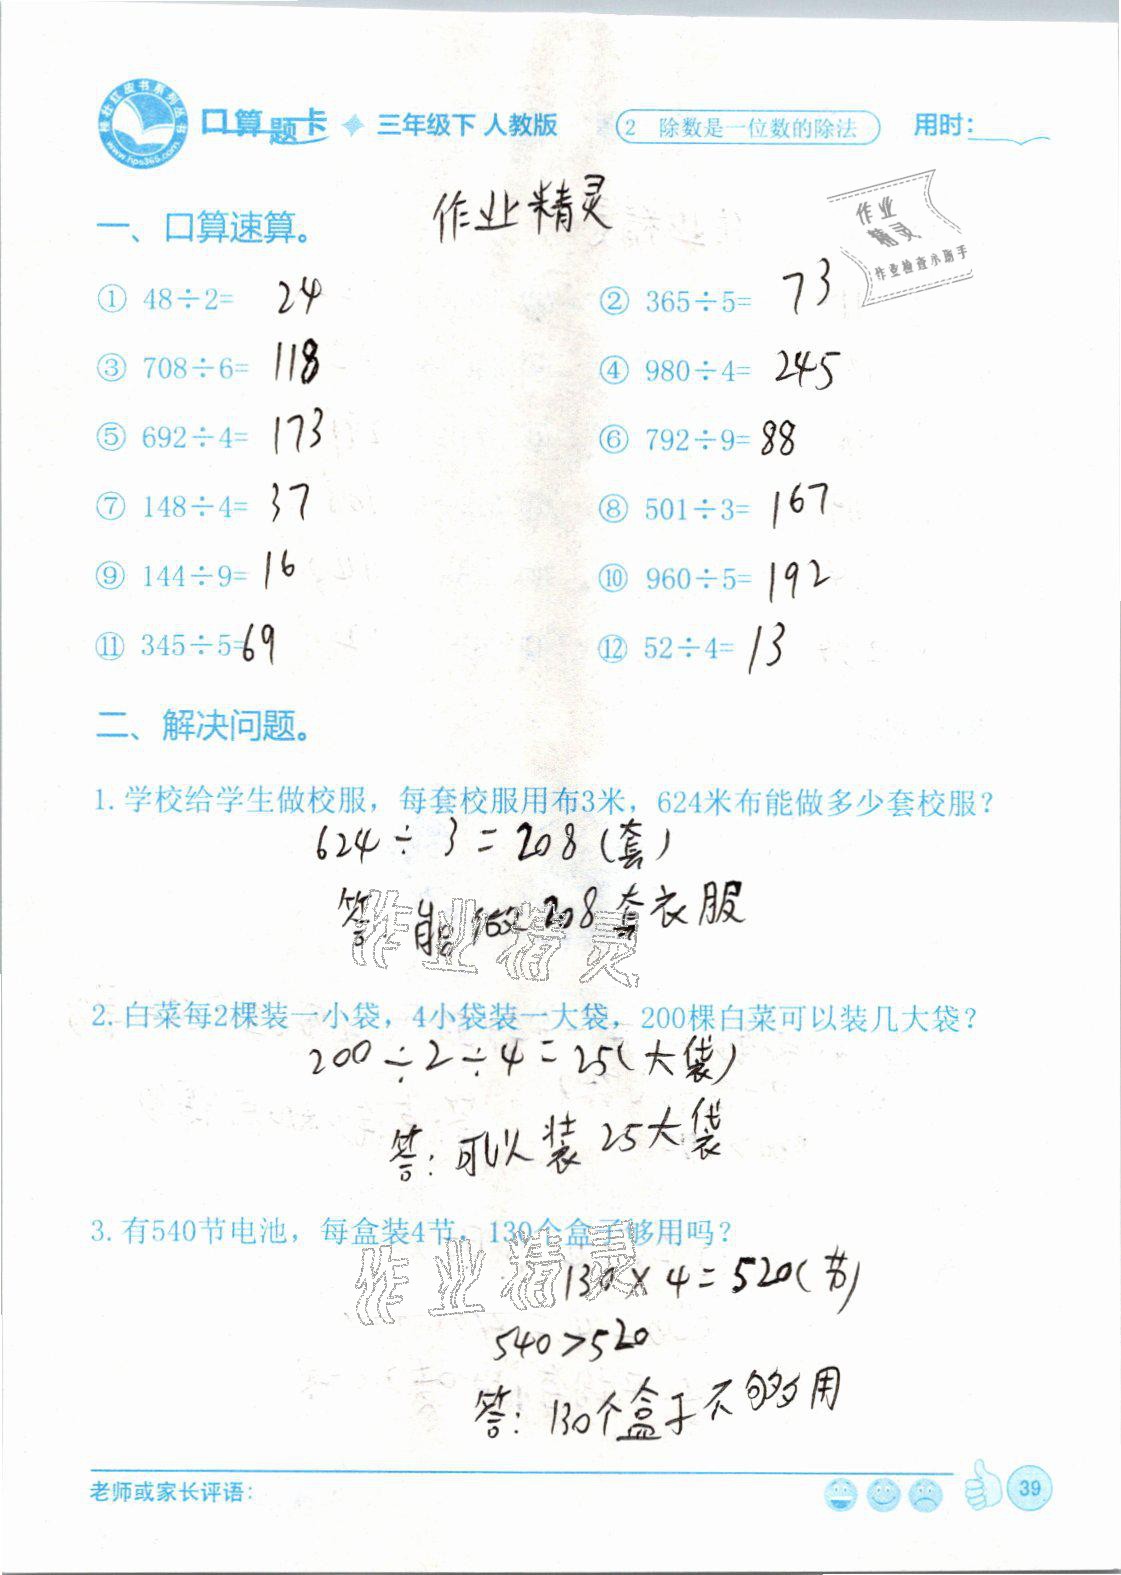 桂壮红皮书系列丛书
www.hps365.com
口算题卡 三年级下 人教版 2 除数是一位数的除法 用时:
作业精灵
作业
精灵
作业检查小助手
一、口算速算。
① 48÷2= 24 ② 365÷5= 73
③ 708÷6= 118 ④ 980÷4= 245
⑤ 692÷4= 173 ⑥ 792÷9= 88
⑦ 148÷4= 37 ⑧ 501÷3= 167
⑨ 144÷9= 16 ⑩ 960÷5= 192
⑪ 345÷5= 69 ⑫ 52÷4= 13
二、解决问题。
1. 学校给学生做校服，每套校服用布3米，624米布能做多少套校服？
624÷3=208(套)
答 能做208套衣服
作业精灵
2. 白菜每2棵装一小袋，4小袋装一大袋，200棵白菜可以装几大袋？
200÷2÷4=25(大袋)
答:可以装25大袋
3. 有540节电池，每盒装4节，130个盒子够用吗？
作业精灵
130×4=520(节)
540>520
答:130个盒子不够用
老师或家长评语:
39